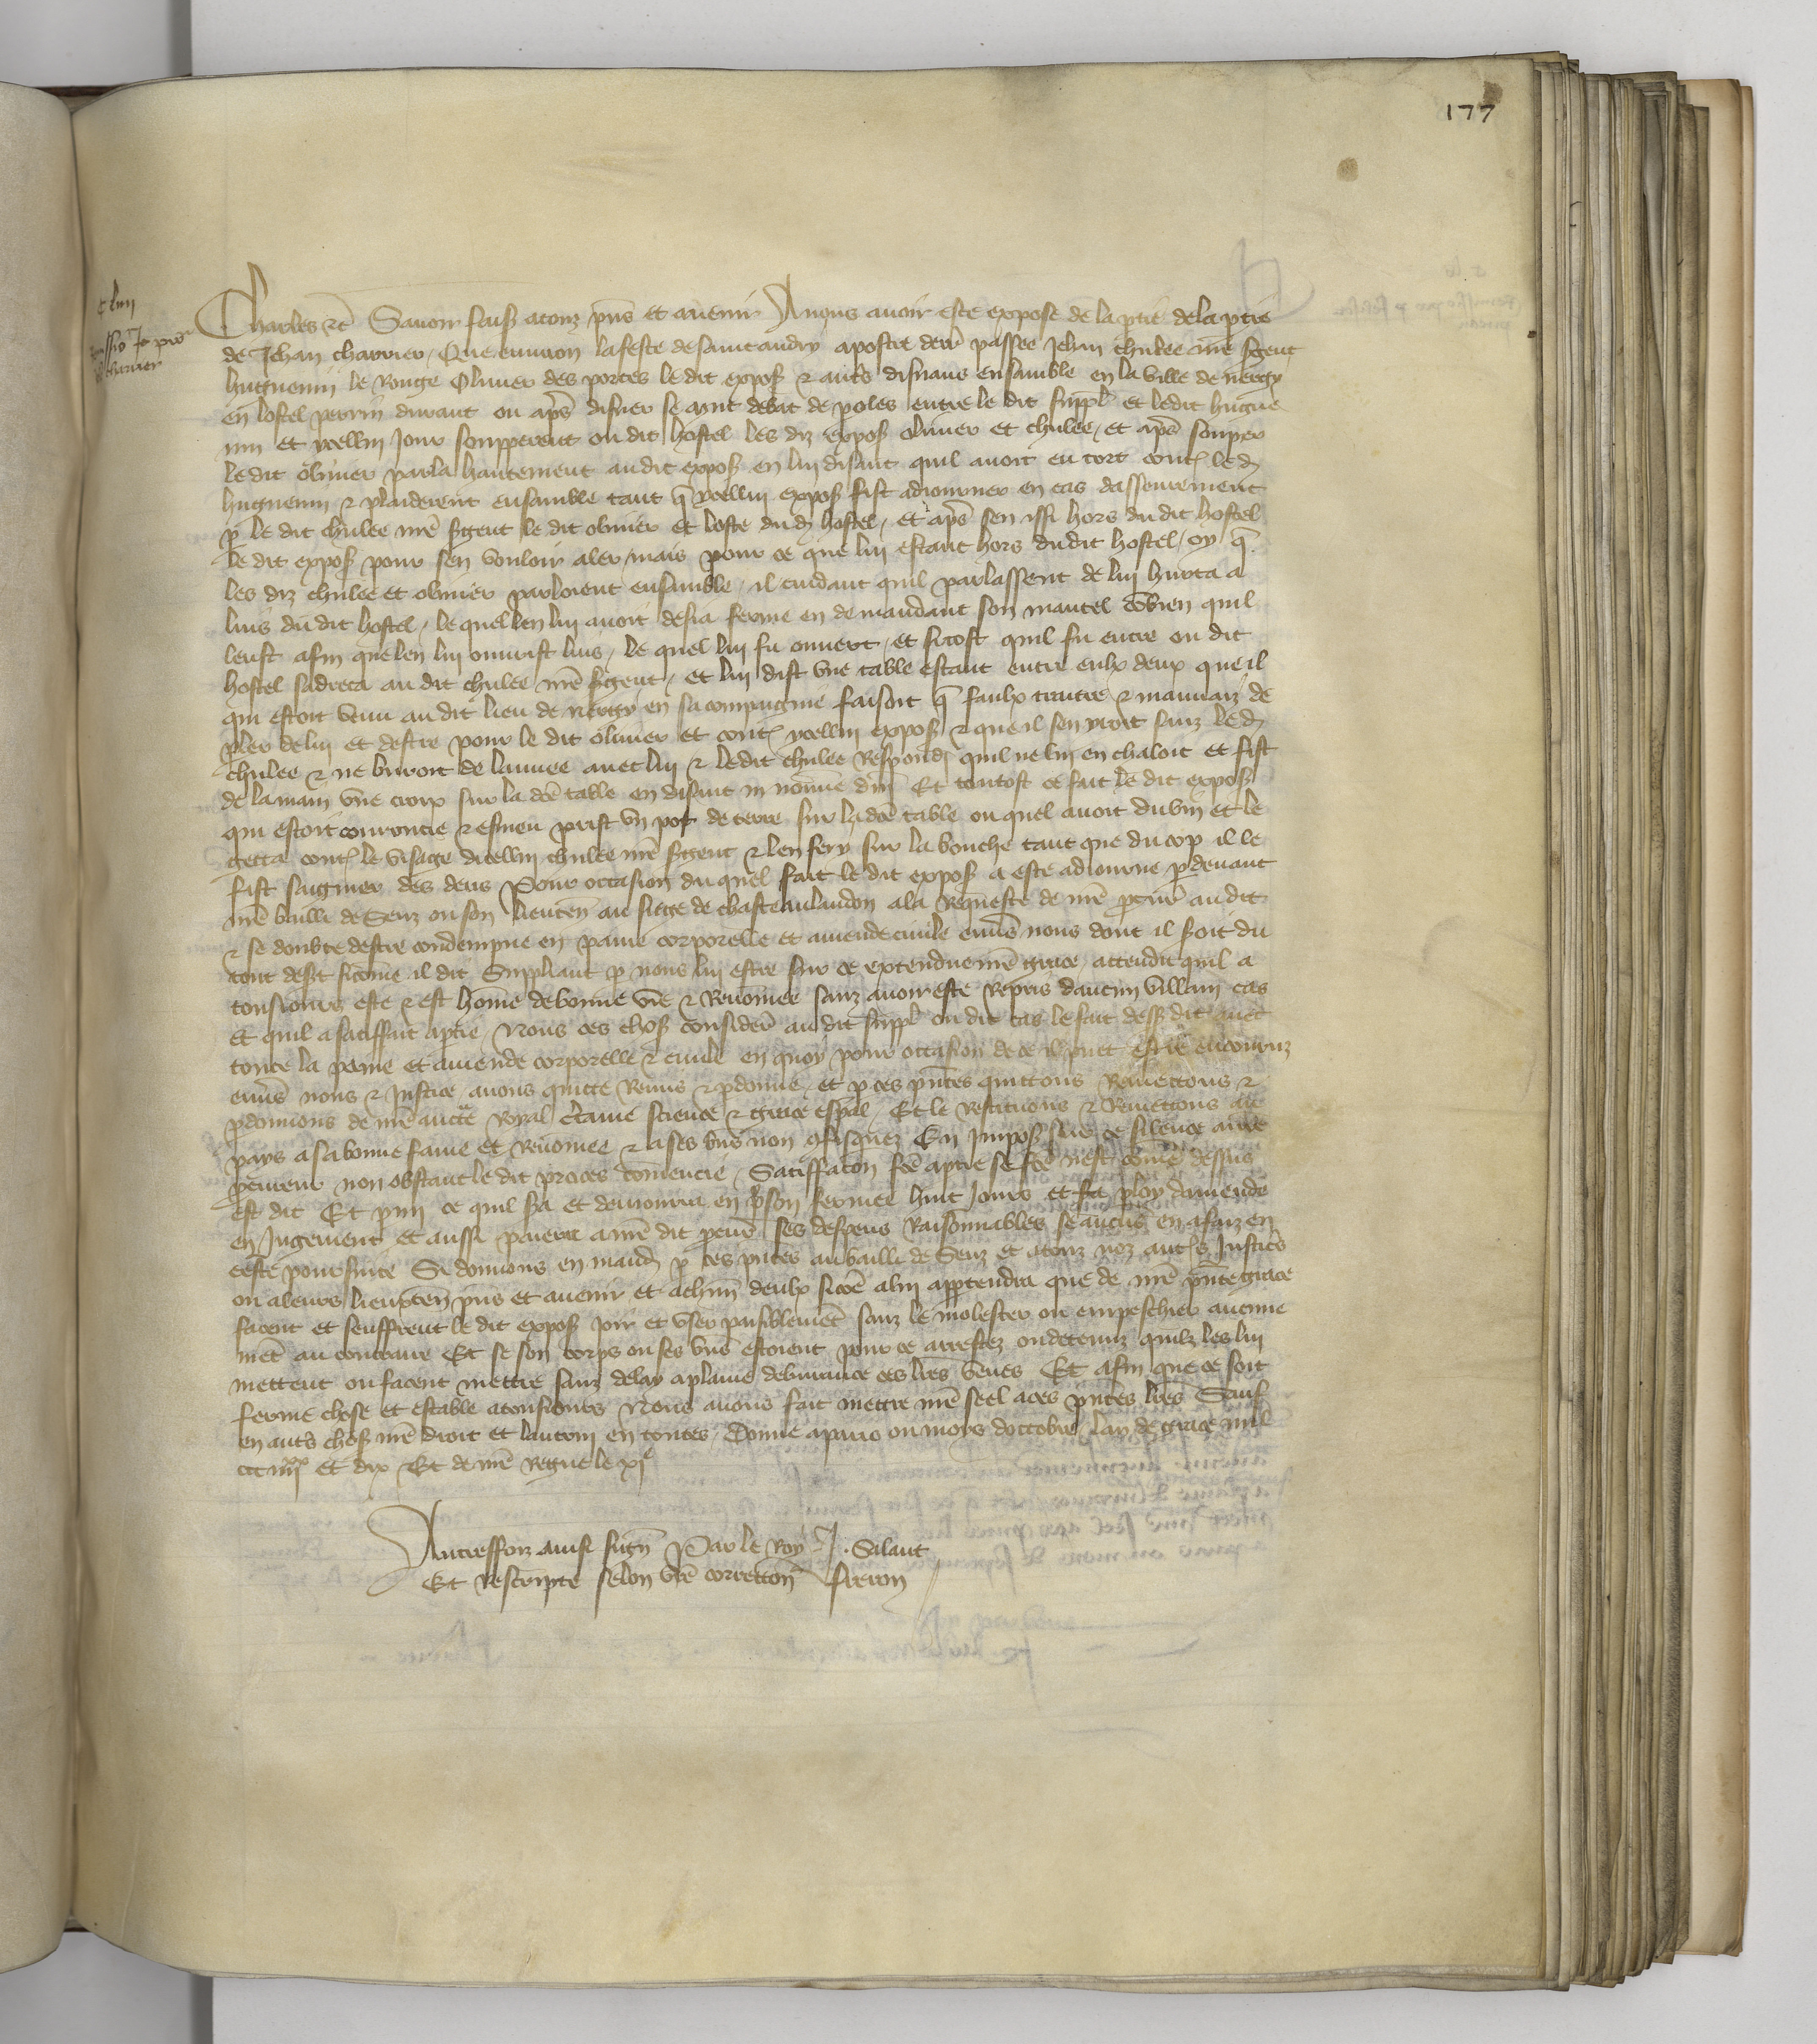 177
Charles etc Savoir faisons a touz pns et avenir A nous avoir este expose de la ptie de la ptie
de Jehan charrier Que environ la feste de saint andry apostre derr passee Jehan chulee nre sgent
huguenin le Rouge Olivier des portes le dit expos et autrs disnans ensamble en la ville de nergy
en lostel perrin durant ou aprs disner se mut debat de poles entre le dit suppl et ledit hugue
nin et ycellui Jour soupperent ou dit hostel les diz expos olivier et chulee et aps souper
le dit olivier parla hautement au dit expos en lui disant quil avoit eu tort cont le d
huguenin et plaiderent ensamble tant q ycellui expos fist adiourner en cas dasseurement
p le dit chulee nre sgent le dit olivier et loste du d hostel et aps sen issi hors du dit hostel
le dit expos pour sen vouloir aler mais pour ce que lui estant hors du dit hostel oy q
les diz chulee et olivier parloient ensamble il cuidant quil parlassent de lui hurta a
luis du dit hostel le quel len lui avoit desia ferme en demandant son mantel combien quil
leust afin que len lui ouvrist luis le quel lui fu ouvert et sitost quil fu entre ou dit
hostel sadreca au dit chulee nre sgent et lui dist une table estant entre eulx deux que il
qui estoit venu au dit lieu de nergy en sa compagnie faisoit q faulx traitre et mauvaiz de
pler de lui et destre pour le dit olivier et cont ycellui expos et que il sen yroit sanz le d
chulee et ne buroit de lannee avec lui et ledit chulee Respondi quil ne lui en chaloit et fist
de la main une croix sur la dce table en disant in nomine dni Et tantost ce fait le dit expos
qui estoit courroucie et esmeu prist un pot de terre sur la dce table ou quel avoit du vin et le
getta cont le visage dicellui chulee nre sgent et len fery sur la bouche tant que du cop il le
fist saigner des dens Pour occasion du quel fait le dit expos a este adiourne pdevant
nre bailli de Senz ou son lieuten au siege de chasteaulandon a la Requeste de nre pcur au dit
et se doubte destre condempne en paine corporelle et amende civile envs nous dont il soit du
tout desert sicome il dit Suppliant p nous lui estre sur ce extendue nre grace attendu quil a
tousiours este et est home de bonne vie et Renomee sanz avoir este Repris daucun villain cas
Et quil a satiffait a ptie Nous ces chos consider au dit suppl ou dit cas le fait dess dit avec
toute la peine et amende corporelle et civile en quoy pour occasion de ce il puet estre encouruz
envs nous et Justice avons quitte Remis et pdonne et p ces pntes quittons Remettons et
pdonnons de nre auctte Royal ctaine science et grace espal Et le Restituons et Remettons au
pays a sa bonne fame et Renomee et a ses bns non confisquez En Impos sur ce silence a nre
pcureur non obstant le dit proces comencie Satiffacon fce a ptie se fce nest come dessus
est dit Et pmi ce quil sa et demourra en pson fermee huit Jours et fa ploy damende
en Jugement et aussi paiera a nre dit pcur ses despens Raisonnables se aucus en a faiz en
ceste poursuite Si donnons en mand p ces pntes au bailli de Senz et a touz noz autrs Justics
ou a leurs lieuxten pns et avenir et a chun deulx sicoe a lui apptendra que de nre pnte grace
facent et seuffrent le dit expos joir et user paisiblemet sanz le molester ou empeschier aucune
met au contraire Et se son corps ou ses bns estoient pour ce arrestez ou detenuz quilz les lui
mettent ou facent mettre sanz delay a plaine delivrance ces lres veues Et afin que ce soit
ferme chose et estable a tousiours Nous avons fait mettre nre seel a ces pntes lres Sauf
en autrs chos nre droit et lautrui en toutes Donne a paris ou mois doctobre lan de grace mil
ccc iiiixx et dix Et de nre Regne le xie
Autreffoiz ainsi sign Par le Roy J. Salaut
Et Rescripte selon vre correction freron